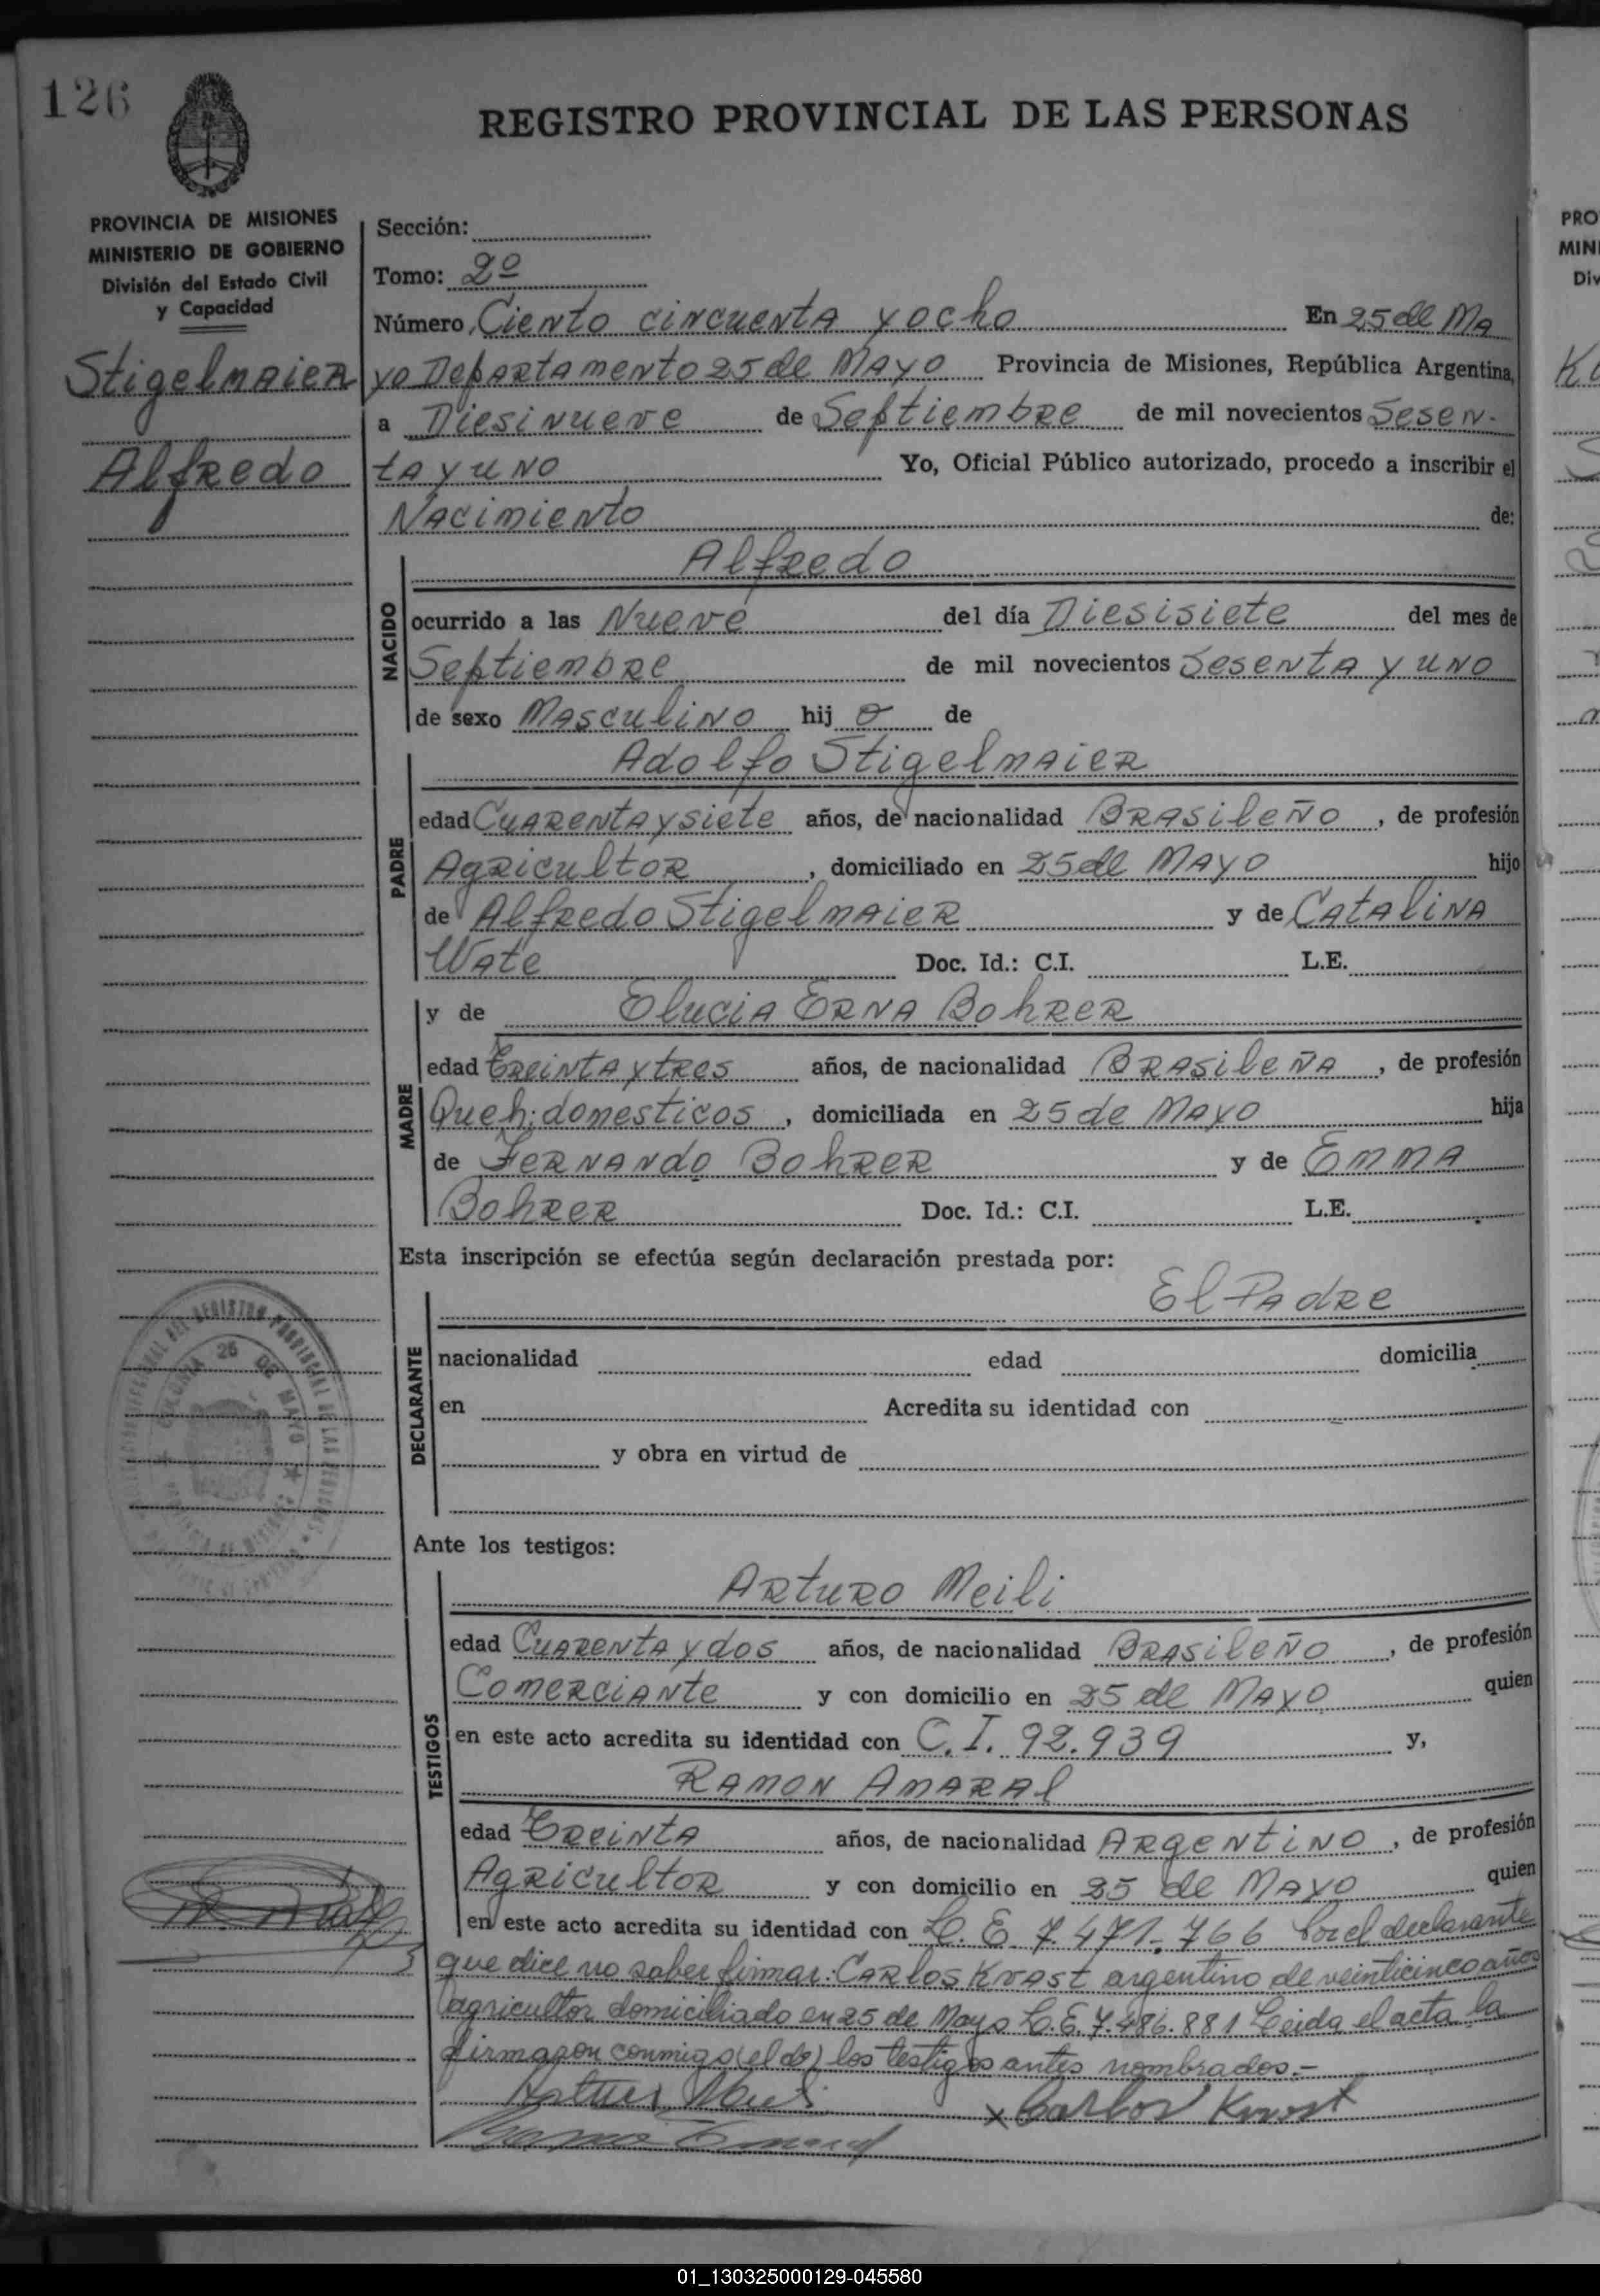 126
REGISTRO PROVINCIAL DE LAS PERSONAS
PROVINCIA DE MISIONES
MINISTERIO DE GOBIERNO
División del Estado Civil
y Capacidad
Stigelmaier
Alfredo
Sección:
Tomo: 2º
Número Ciento cincuenta y ocho En 25 de Ma
yo Departamento 25 de Mayo Provincia de Misiones, República Argentina,
a Diesinueve de Septiembre de mil novecientos Sesen-
ta y uno Yo, Oficial Público autorizado, procedo a inscribir el
Nacimiento de:
NACIDO
Alfredo
ocurrido a las Nueve del día Diesisiete del mes de
Septiembre de mil novecientos Sesenta y uno
de sexo Masculino hij o de
PADRE
Adolfo Stigelmaier
edad Cuarenta y siete años, de nacionalidad Brasileño, de profesión
Agricultor, domiciliado en 25 de Mayo hijo
de Alfredo Stigelmaier y de Catalina
Wate Doc. Id.: C.I. L.E.
MADRE
y de Elucia Erna Bohrer
edad Treinta y tres años, de nacionalidad Brasileña, de profesión
Queh. domesticos, domiciliada en 25 de Mayo hija
de Fernando Bohrer y de Emma
Bohrer Doc. Id.: C.I. L.E.
Esta inscripción se efectúa según declaración prestada por:
El Padre
DECLARANTE
nacionalidad edad domicilia
en Acredita su identidad con
y obra en virtud de
Ante los testigos:
TESTIGOS
Arturo Meili
edad Cuarenta y dos años, de nacionalidad Brasileño, de profesión
Comerciante y con domicilio en 25 de Mayo quien
en este acto acredita su identidad con C.I. 92.939 y,
Ramon Amaral
edad Treinta años, de nacionalidad Argentino, de profesión
Agricultor y con domicilio en 25 de Mayo quien
en este acto acredita su identidad con L.E. 7.471.766 Por el declarante
que dice no saber firmar: Carlos Knast argentino de veinticinco años
agricultor domiciliado en 25 de Mayo L.E. 7.486.881 Leida el acta la
firmaron conmigo (el de) los testigos antes nombrados.-
x Carlos
PRO
MINI
Div
01_130325000129-045580